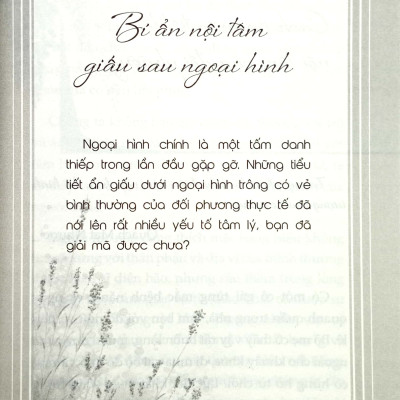 Bí ẩn nội tâm
giấu sau ngoại hình
Ngoại hình chính là một tấm danh
thiếp trong lần đầu gặp gỡ. Những tiểu
tiết ẩn giấu dưới ngoại hình trông có vẻ
bình thường của đối phương thực tế đã
nói lên rất nhiều yếu tố tâm lý, bạn đã
giải mã được chưa?